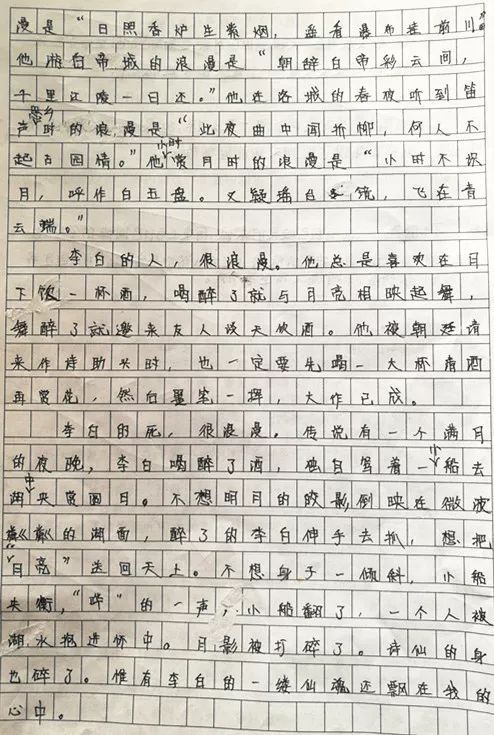 漫是“日照香炉生紫烟，遥看瀑布挂前川”
他游白帝城的浪漫是“朝辞白帝彩云间，
千里江陵一日还。”他在洛城的春夜听到笛
声思乡时的浪漫是“此夜曲中闻折柳，何人不
起故园情。”他小时赏月时的浪漫是“小时不识
月，呼作白玉盘。又疑瑶台镜，飞在青
云端。”
李白的人，很浪漫。他总是喜欢在月
下饮一杯酒，喝醉了就与月亮相映起舞，
舞醉了就邀来友人谈天饮酒。他被朝廷请
来作诗助兴时，也一定要先喝一大杯清酒
再赏花，然后墨笔一挥，大作已成。
李白的死，很浪漫。传说有一个满月
的夜晚，李白喝醉了酒，独自驾着一小船去
湖中央赏圆月。不想明月的皎影倒映在微波
粼粼的湖面，醉了的李白伸手去抓，想把
“月亮”送回天上。不想身子一倾斜，小船
失衡，“哗”的一声，小船翻了，一个人被
湖水抱进怀中。月影被打碎了。诗仙的身
也碎了。惟有李白的一缕仙魂还飘在我的
心中。